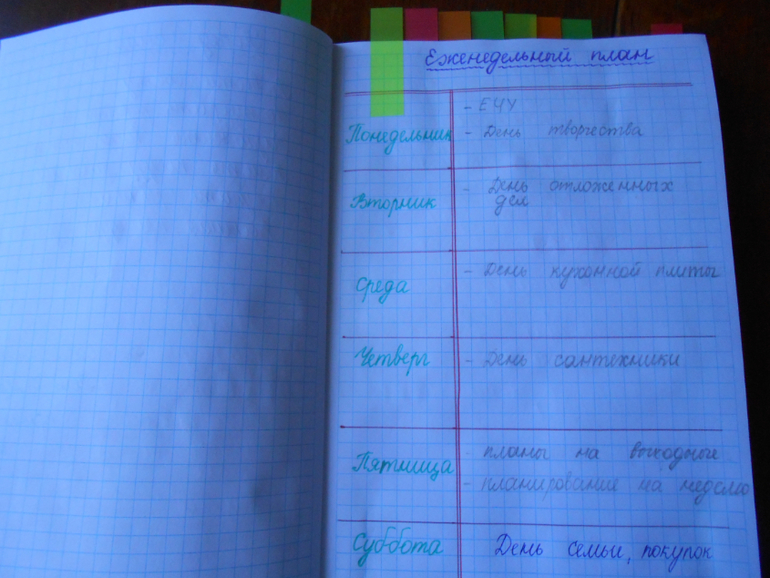 Еженедельный план
Понедельник
- ЕЧУ
- День творчества
Вторник
- День отложенных
дел
Среда
- День кухонной плиты
Четверг
- День сантехники
Пятница
- планы на выходные
- планирование на неделю
Суббота
День семьи, покупок